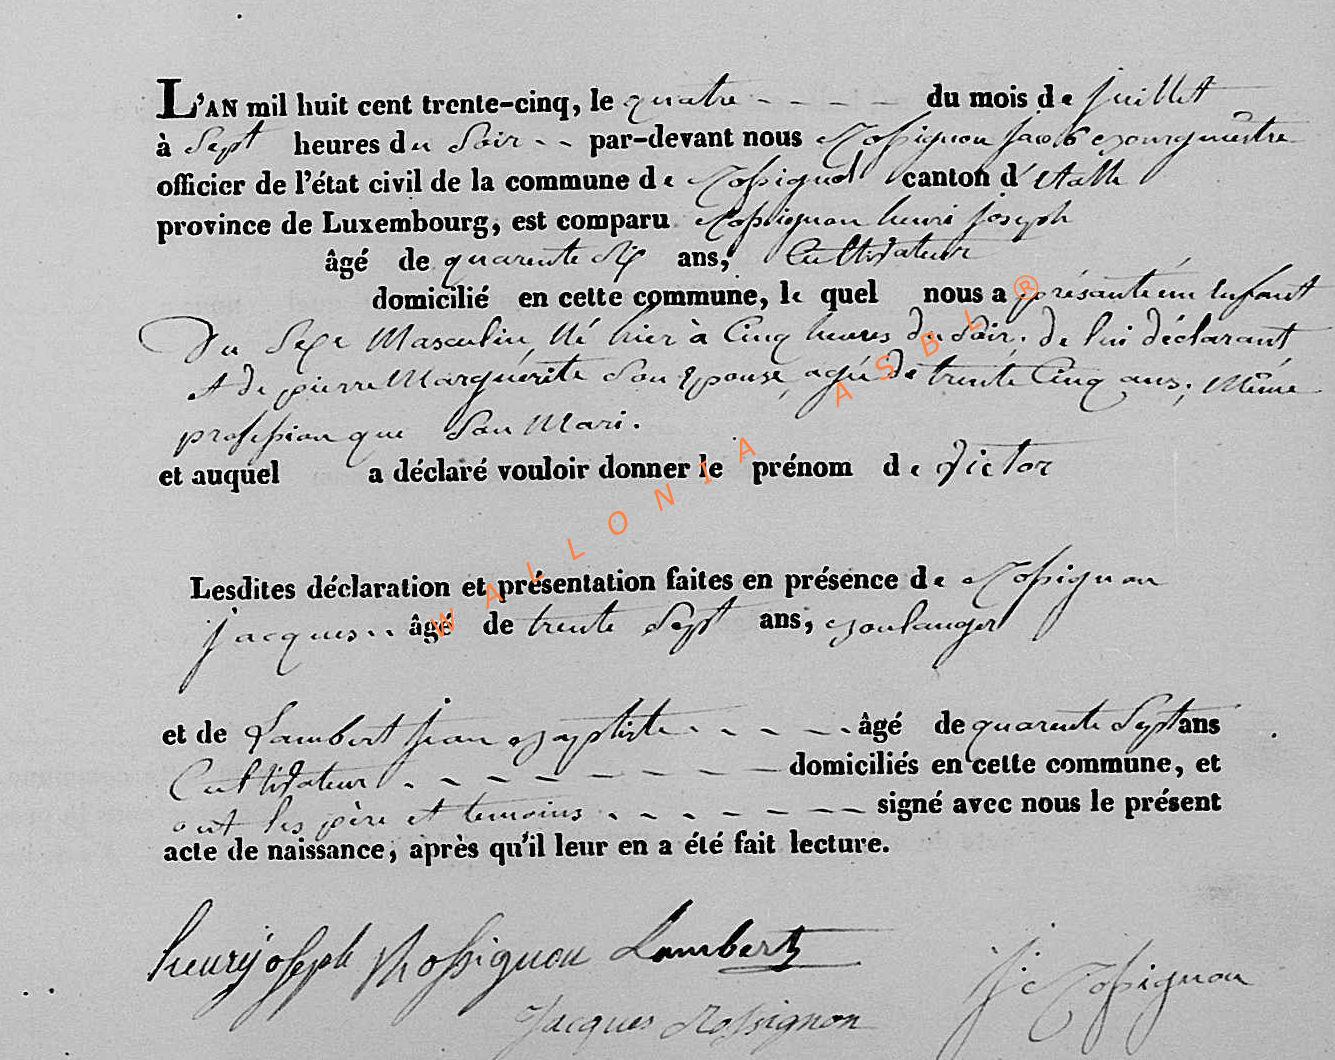 L'AN mil huit cent trente-cinq, le quatre - - - - du mois de juillet
à Sept heures du Soir - - par-devant nous Rossignon Jacob Bourgmestre
officier de l'état civil de la commune de Rossignol canton d'Etalle
province de Luxembourg, est comparu Rossignon henri joseph
âgé de quarente Six ans, Cultivateur
domicilié en cette commune, le quel nous a présanté un Enfant
Du Sexe Masculin, Né hier à Cinq heures du Soir, de lui déclarant
et de pierre Marguérite Son Epouse, agée de trente Cinq ans, Même
profession que Son Mari.
et auquel a déclaré vouloir donner le prénom de Victor
Lesdites déclaration et présentation faites en présence de Rossignon
jacques - - âgé de trente Sept ans, Boulanger
et de Lambert jean Baptiste - - - - - âgé de quarente Sept ans
Cultivateur - - - - - - - - domiciliés en cette commune, et
ont les père et temoins - - - - - - - signé avec nous le présent
acte de naissance, après qu'il leur en a été fait lecture.
henry joseph Rossignon Lambert
Jacques Rossignon
jc Rossignon
WALLONIA ASBL ®